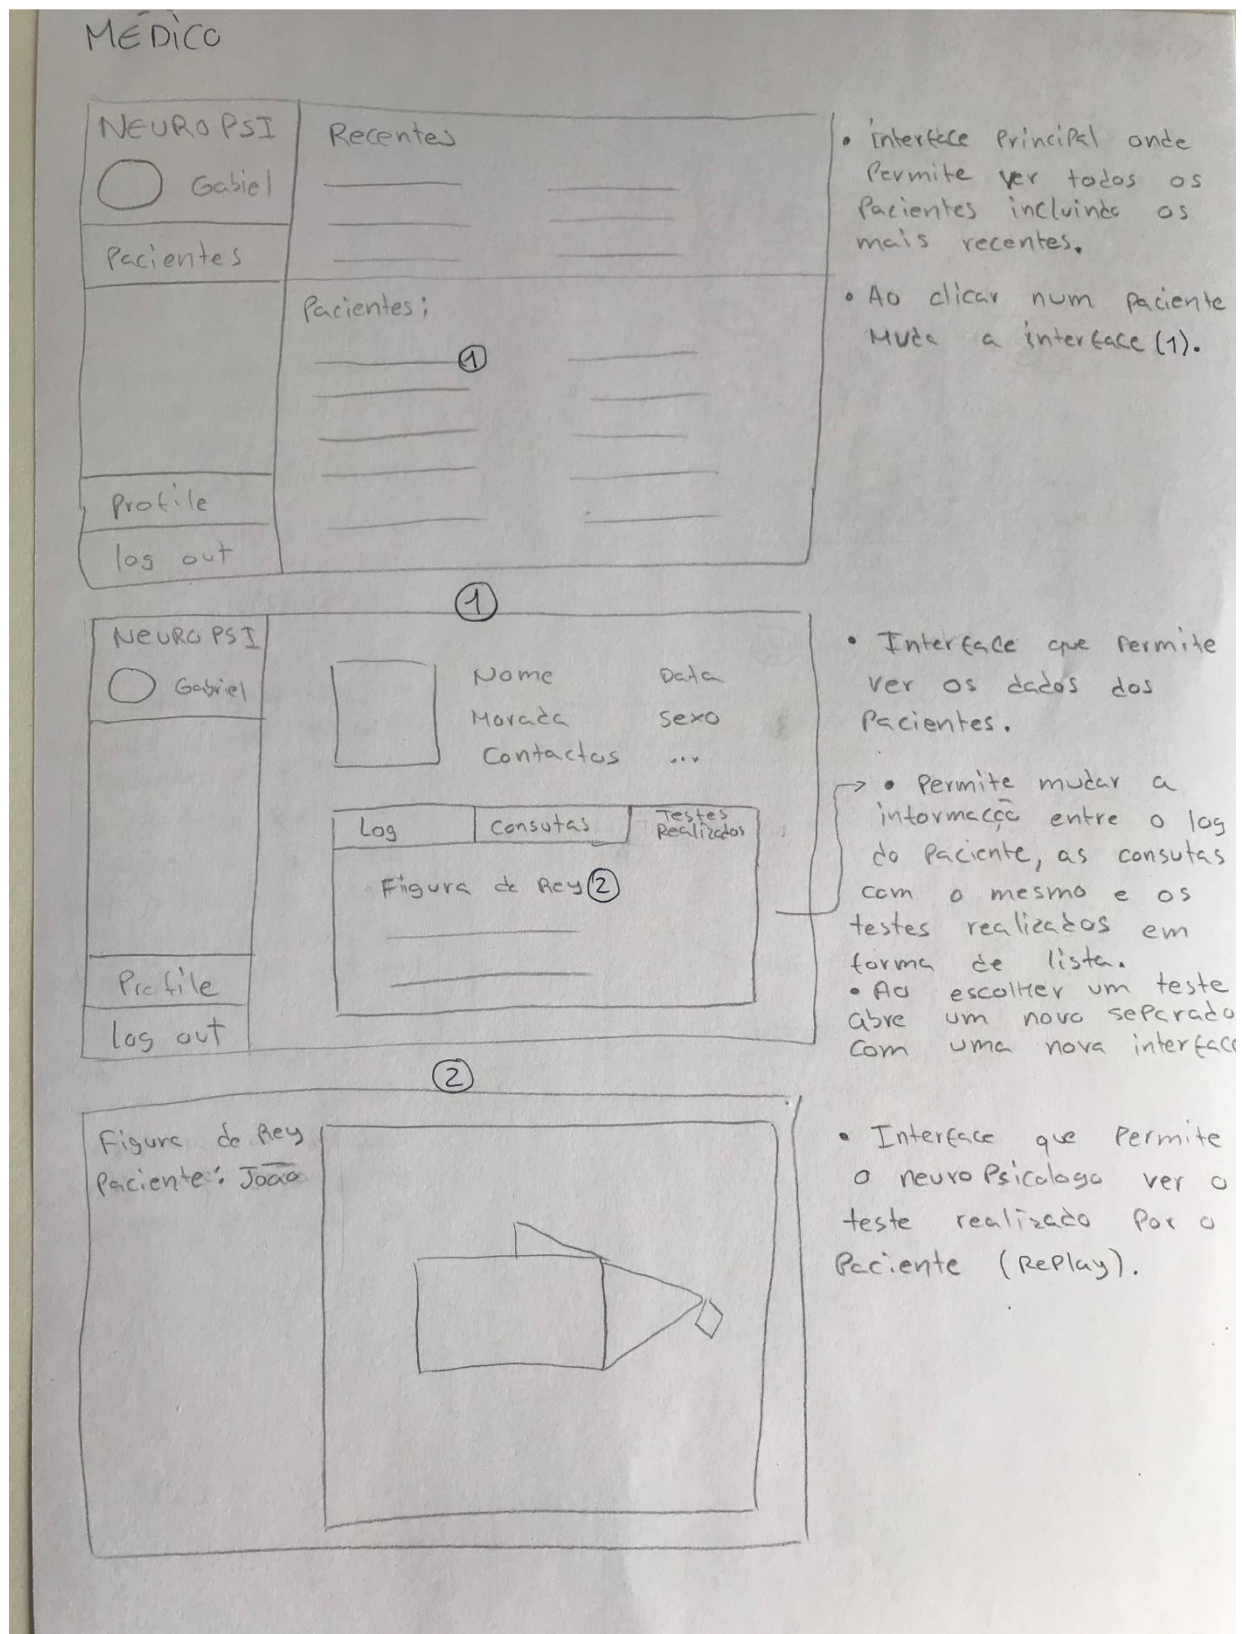 MÉDICO
NEUROPSI
Gabiel
Pacientes
Profile
log out
Recentes
Pacientes:
1
• interface Principal onde
Permite ver todos os
Pacientes incluindo os
mais recentes.
• Ao clicar num paciente
Muda a interface (1).
1
NEUROPSI
Gabriel
Profile
log out
Nome Data
Morada sexo
Contactos ...
Log
Consutas
Testes
Realizados
Figura de Rey 2
• Interface que Permite
ver os dados dos
Pacientes.
• Permite mudar a
informacção entre o log
do Paciente, as consutas
com o mesmo e os
testes realizados em
forma de lista.
• Ao escolher um teste
abre um novo separado
com uma nova interface
2
Figura de Rey
Paciente: João
• Interface que Permite
o neuroPsicologo ver o
teste realizado Por o
Paciente (RePlay).